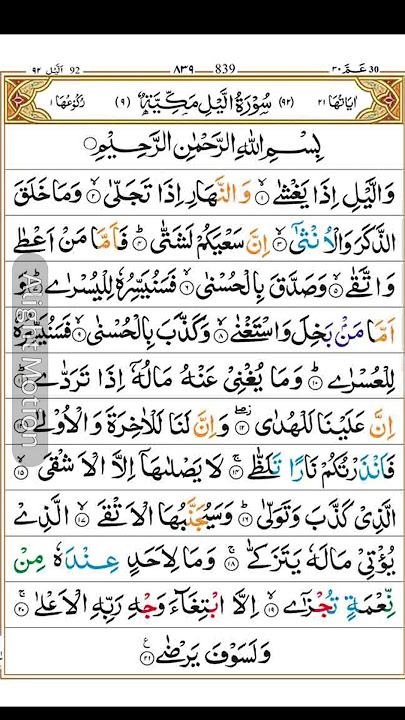 ٩٢ اَلَّيْل 92 ٨٣٩ 839 ٣٠ عَمَّ 30
اٰيَاتُهَا ٢١ (٩٢) سُوْرَةُ الَّيْلِ مَكِّيَّةٌ (٩) رُكُوْعُهَا ١
بِسْمِ اللّٰهِ الرَّحْمٰنِ الرَّحِيْمِ
وَالَّيْلِ اِذَا يَغْشٰى ۙ‏﴿۱﴾ وَالنَّهَارِ اِذَا تَجَلّٰى ۙ‏﴿۲﴾ وَمَا خَلَقَ
الذَّكَرَ وَالْاُنْثٰٓى ۙ‏﴿۳﴾ اِنَّ سَعْيَكُمْ لَشَتّٰى ؕ‏﴿۴﴾ فَاَمَّا مَنْ اَعْطٰى
وَاتَّقٰى ۙ‏﴿۵﴾ وَصَدَّقَ بِالْحُسْنٰى ۙ‏﴿۶﴾ فَسَنُيَسِّرُهٗ لِلْيُسْرٰى ؕ‏﴿۷﴾ وَ
اَمَّا مَنْۢ بَخِلَ وَاسْتَغْنٰى ۙ‏﴿۸﴾ وَكَذَّبَ بِالْحُسْنٰى ۙ‏﴿۹﴾ فَسَنُيَسِّرُهٗ
لِلْعُسْرٰى ؕ‏﴿۱۰﴾ وَمَا يُغْنِيْ عَنْهُ مَالُهٗۤ اِذَا تَرَدّٰى ؕ‏﴿۱۱﴾
اِنَّ عَلَيْنَا لَلْهُدٰى ۖ‏﴿۱۲﴾ وَاِنَّ لَنَا لَلْاٰخِرَةَ وَالْاُوْلٰى ‏﴿۱۳﴾
فَاَنْذَرْتُكُمْ نَارًا تَلَظّٰى ۚ‏﴿۱۴﴾ لَا يَصْلٰىهَاۤ اِلَّا الْاَشْقَى ۙ‏﴿۱۵﴾
الَّذِيْ كَذَّبَ وَتَوَلّٰى ؕ‏﴿۱۶﴾ وَسَيُجَنَّبُهَا الْاَتْقَى ۙ‏﴿۱۷﴾ الَّذِيْ
يُؤْتِيْ مَالَهٗ يَتَزَكّٰى ۚ‏﴿۱۸﴾ وَمَا لِاَحَدٍ عِنْدَهٗ مِنْ
نِّعْمَةٍ تُجْزٰٓى ۙ‏﴿۱۹﴾ اِلَّا ابْتِغَآءَ وَجْهِ رَبِّهِ الْاَعْلٰى ۚ‏﴿۲۰﴾
وَلَسَوْفَ يَرْضٰى ‏﴿۲۱﴾
Alight Motion